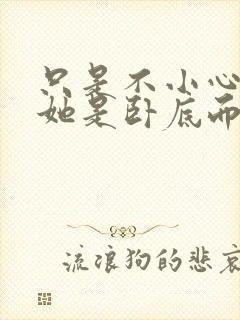 只是不小心
她是卧底而
流浪狗的悲哀